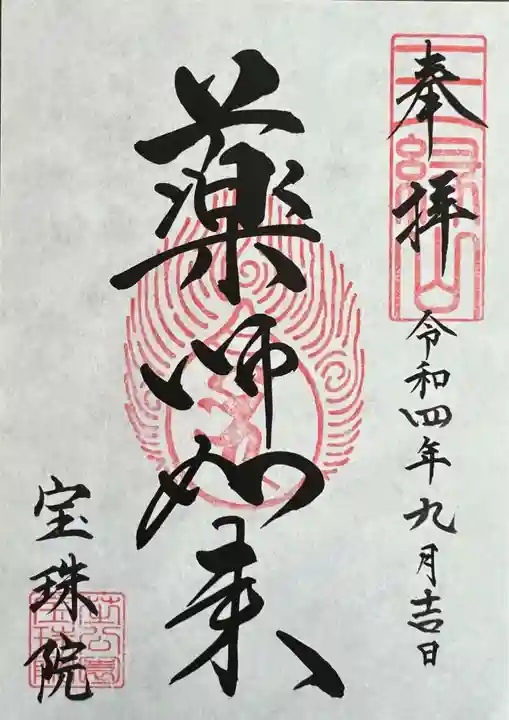 奉拝
令和四年九月吉日
薬師如来
宝珠院
三縁山